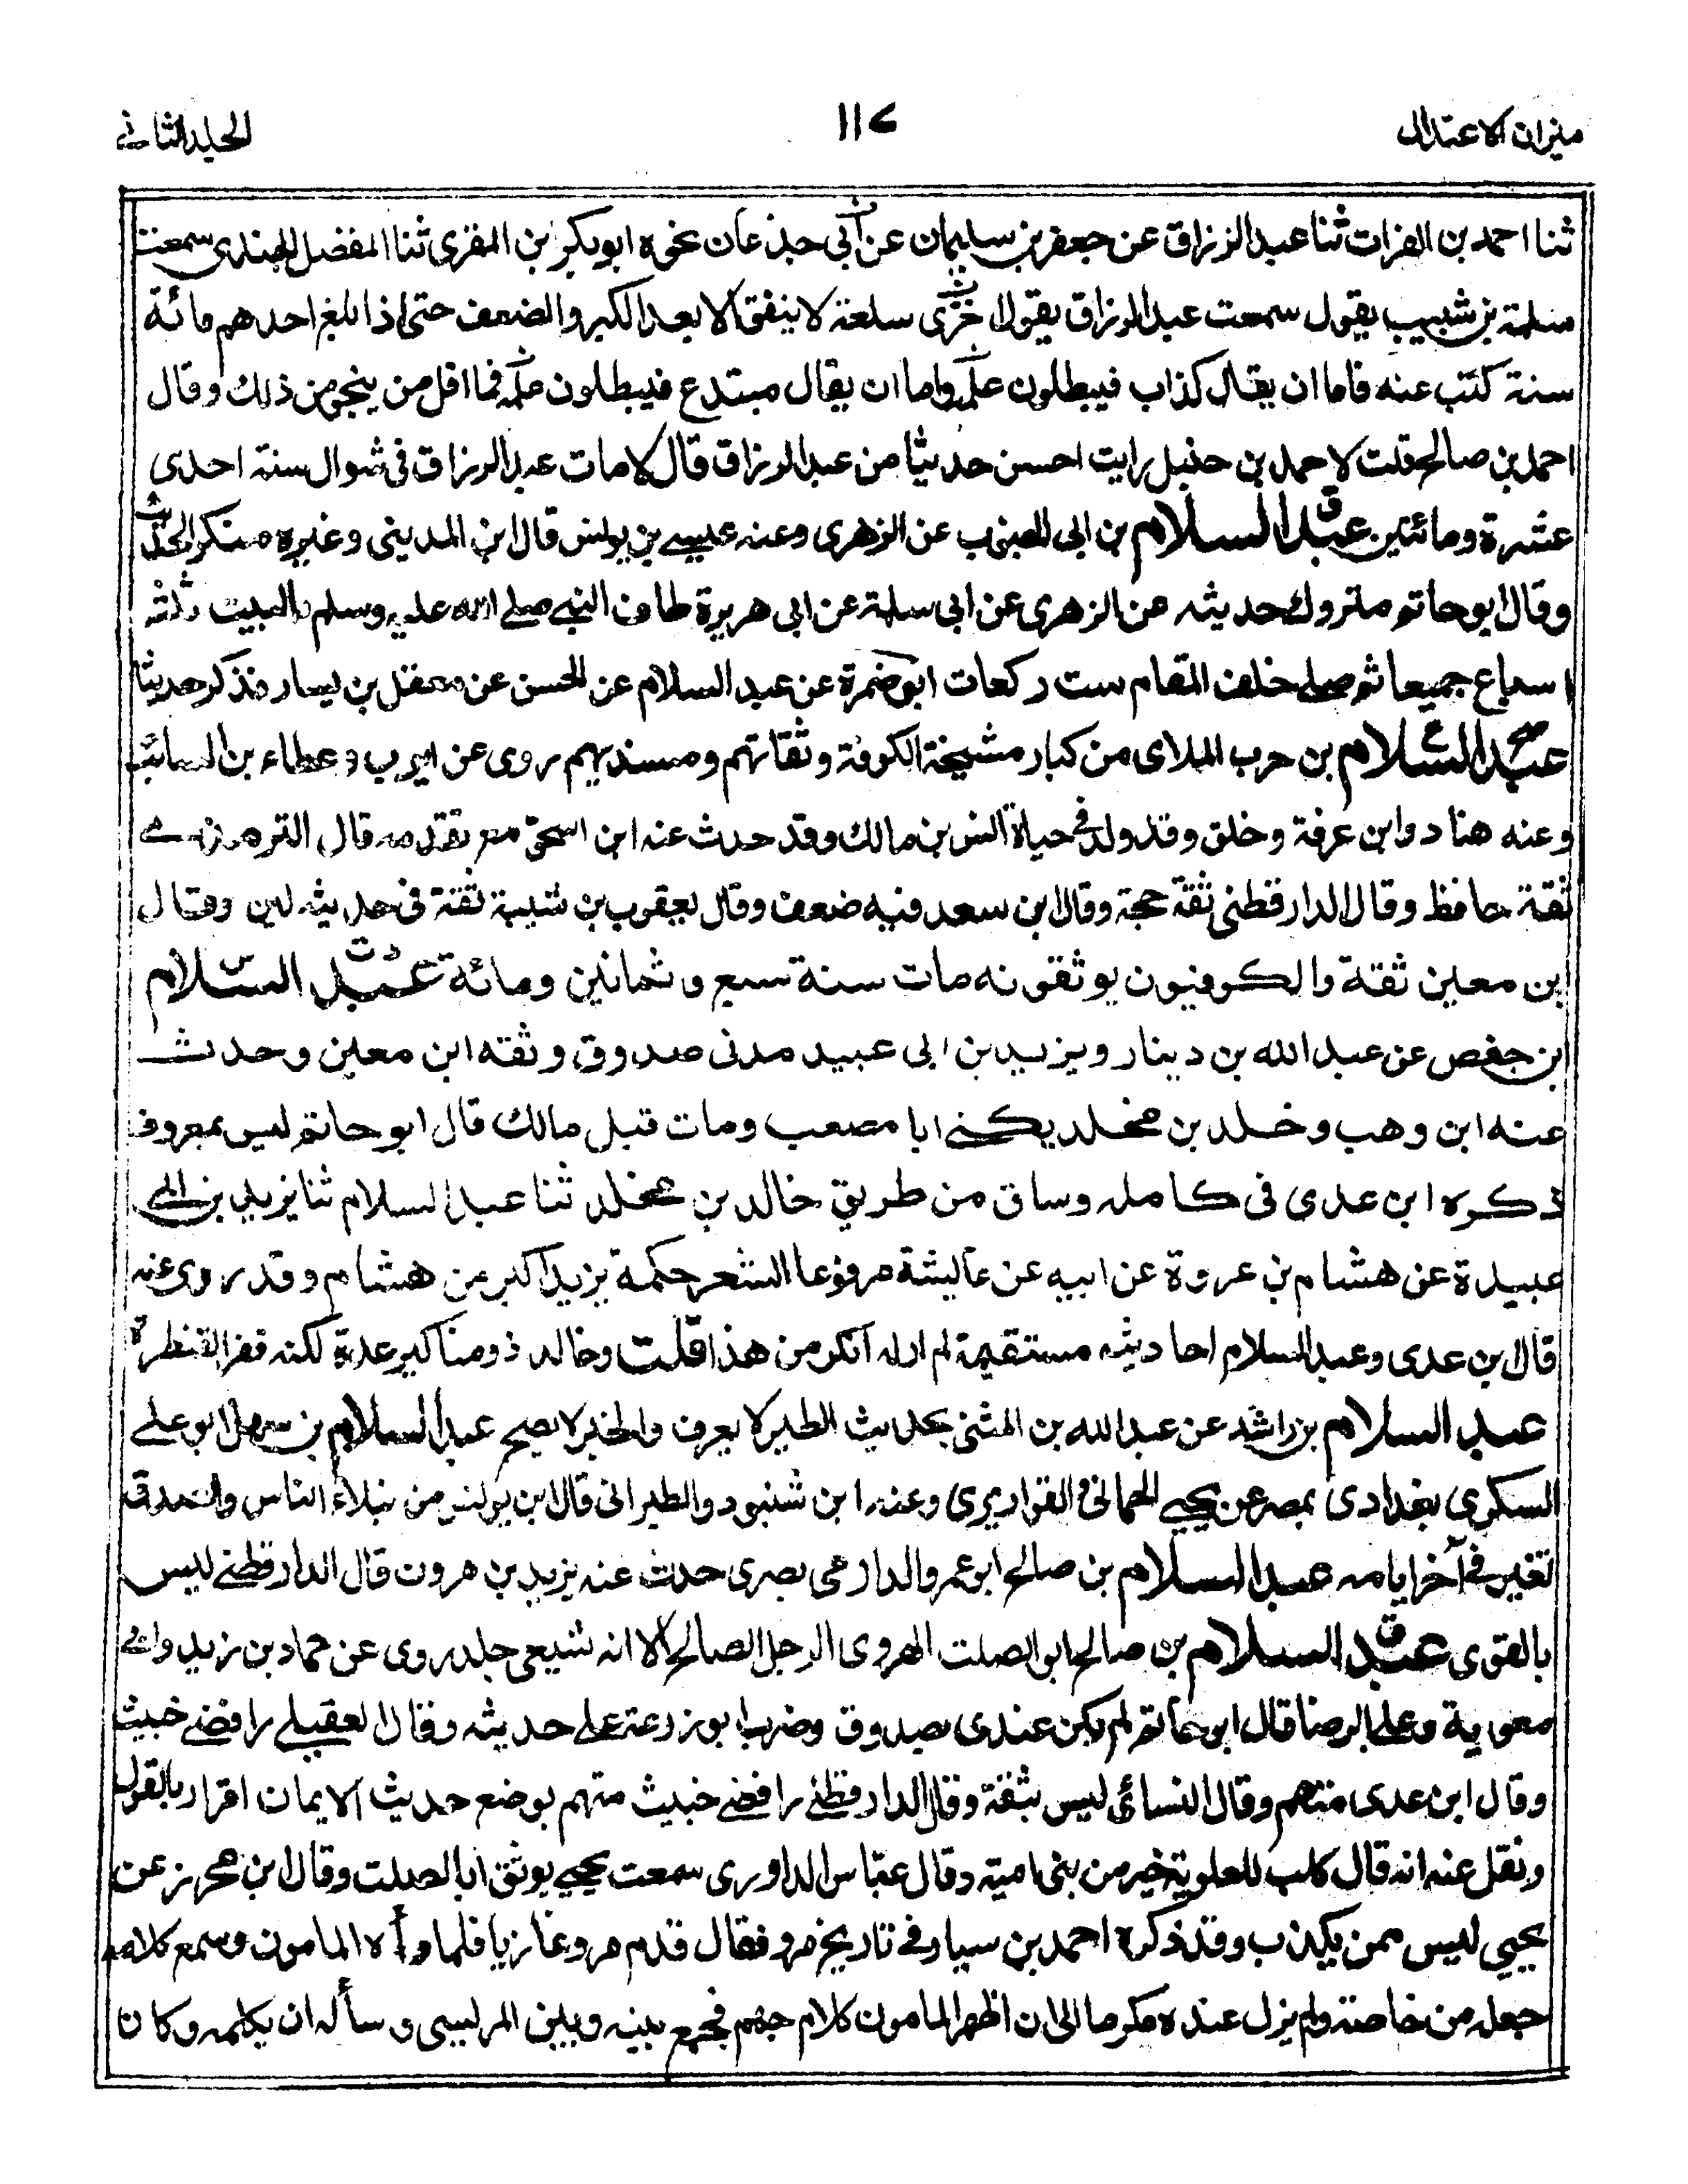 ميزان الاعتدال
١١٧
الجلد الثاني
ثنا احمد بن الفرات ثنا عبد الرزاق عن جعفر بن سليمان عن ثابت عن نحوه ابو بكر بن المقرى ثنا المفضل الجندى سمعت
سلمة بن شبيب يقول سمعت عبد الرزاق يقول اخزى سلعة لا ينفق الا بعد الكبر والضعف حتى اذا بلغ احدهم مائة
سنة كتب عنه فاما ان يقال كذاب فيبطلون علمه واما ان يقال مبتدع فيبطلون علمه فما اقل من ينجو من ذلك وقال
احمد بن صالح قلت لاحمد بن حنبل رايت احسن حديثا من عبد الرزاق قال لا مات عبد الرزاق فى شوال سنة احدى
عشرة ومائتين عبد السلام بن ابى الجنوب عن الزهرى وعنه عيسى بن يونس قال ابن المدينى وغيره منكر الحديث
وقال ابو حاتم متروك حديثه عن الزهرى عن ابى سلمة عن ابى هريرة طاف النبى صلى الله عليه وسلم بالبيت ثلثة
اسباع جميعا ثم صلى خلف المقام ست ركعات ابو ضمرة عن عبد السلام عن الحسن عن معقل بن يسار فذكر حديثا
عبد السلام بن حرب الملاى من كبار مشيخة الكوفة وثقاتهم ومسنديهم روى عن ايوب وعطاء بن السائب
وعنه هناد وابن عرفة وخلق وقد ولد فى حياة انس بن مالك وقد حدث عنه ابن اسحق مع تقدمه قال الترمذى
ثقة حافظ وقال الدارقطنى ثقة حجة وقال ابن سعد فيه ضعف وقال يعقوب بن شيبة ثقة فى حديثه لين وقال
بن معين ثقة والكوفيون يوثقونه مات سنة سبع وثمانين ومائة عبد السلام
بن حفص عن عبد الله بن دينار ويزيد بن ابى عبيد مدنى صدوق وثقه ابن معين وحدث
عنه ابن وهب وخلد بن مخلد يكنى ابا مصعب ومات قبل مالك قال ابو حاتم ليس بمعروف
ذكره ابن عدى فى كامله وساق من طريق خالد بن مخلد ثنا عبد السلام ثنا يزيد بن ابى
عبيدة عن هشام بن عروة عن ابيه عن عايشة مرفوعا الشعر حكمة يزيد اكبر من هشام وقد روى عنه
قال بن عدى وعبد السلام احاديثه مستقيمة لم ار له انكر من هذا قلت وخالد ذو مناكير عدة لكنه قفز القنطرة
عبد السلام بن راشد عن عبد الله بن المثنى بحديث الطير لا يعرف والخبر لا يصح عبد السلام بن سهل ابو على
السكرى بغدادى بمصر عن يحيى الحمانى والقواريرى وعنه ابن شنبوذ والطبرانى قال ابن يونس من نبلاء الناس واهل صدق
تغير فى آخر ايامه عبد السلام بن صالح ابو عمرو الدارمى بصرى حدث عنه يزيد بن هرون قال الدارقطنى ليس
بالقوى عبد السلام بن صالح ابو الصلت الهروى الرجل الصالح الا انه شيعى جلد روى عن حماد بن زيد وابى
معوية وعلى الرضا قال ابو حاتم لم يكن عندى بصدوق وضرب ابو زرعة على حديثه وقال العقيلى رافضى خبيث
وقال ابن عدى متهم وقال النسائى ليس بثقة وقال الدارقطنى رافضى خبيث متهم بوضع حديث الايمان اقرار بالقول
ونقل عنه انه قال كلب للعلوية خير من بنى امية وقال عباس الداورى سمعت يحيى يوثق ابا الصلت وقال ابن محرز عن
يحيى ليس ممن يكذب وقد ذكره احمد بن سيار فى تاريخ مرو فقال قدم مرو غازيا فلما رأه المامون وسمع كلامه
جعله من خاصته ولم يزل عنده مكرما الى ان اظهر المامون كلام جهم فجمع بينه وبين المريسى وسأله ان يكلمه وكان